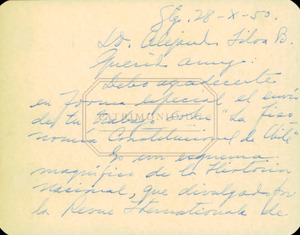 Stg. 28-X-50.
Dr. Alejandro Silva B.
Querido amigo:
Debo agradecerte
en forma especial el envío
de tu "La Fiso-
nomía Constitucional de Chile
Es un esquema
magnífico de la Historia
Nacional, que divulgado por
la Revue Internationale de